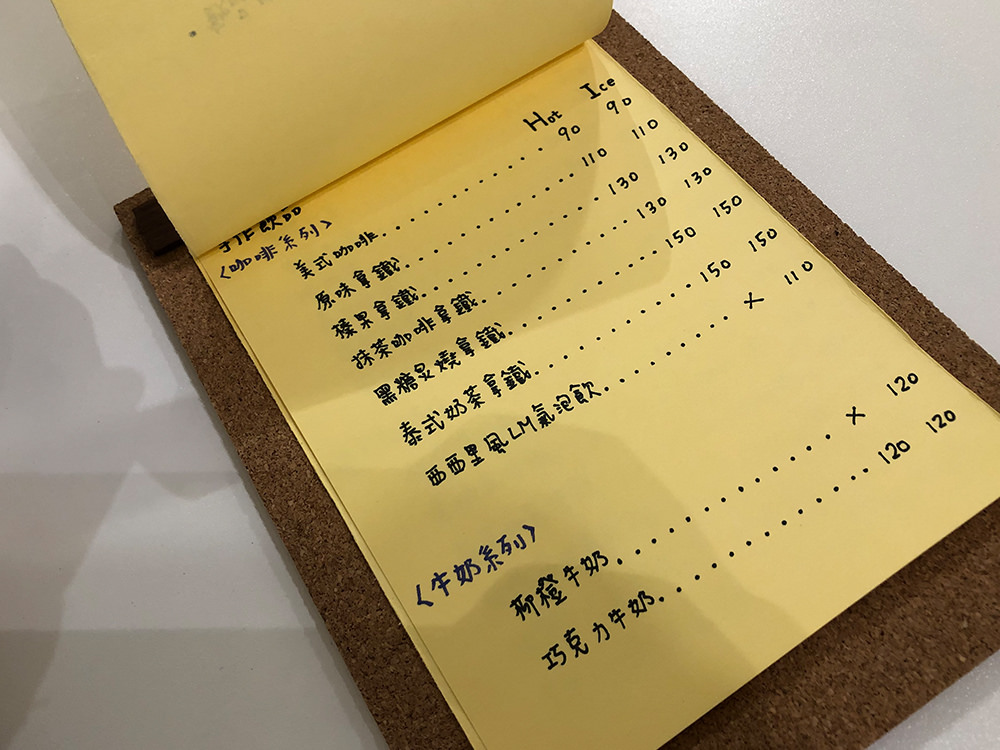 Hot Ice
手作飲品
〈咖啡系列〉
美式咖啡 90 90
原味拿鐵 110 110
榛果拿鐵 130 130
抹茶咖啡拿鐵 130 130
黑糖炙燒拿鐵 150 150
泰式奶茶拿鐵 150 150
西西里風LM氣泡飲 × 110
〈牛奶系列〉
柳橙牛奶 × 120
巧克力牛奶 120 120